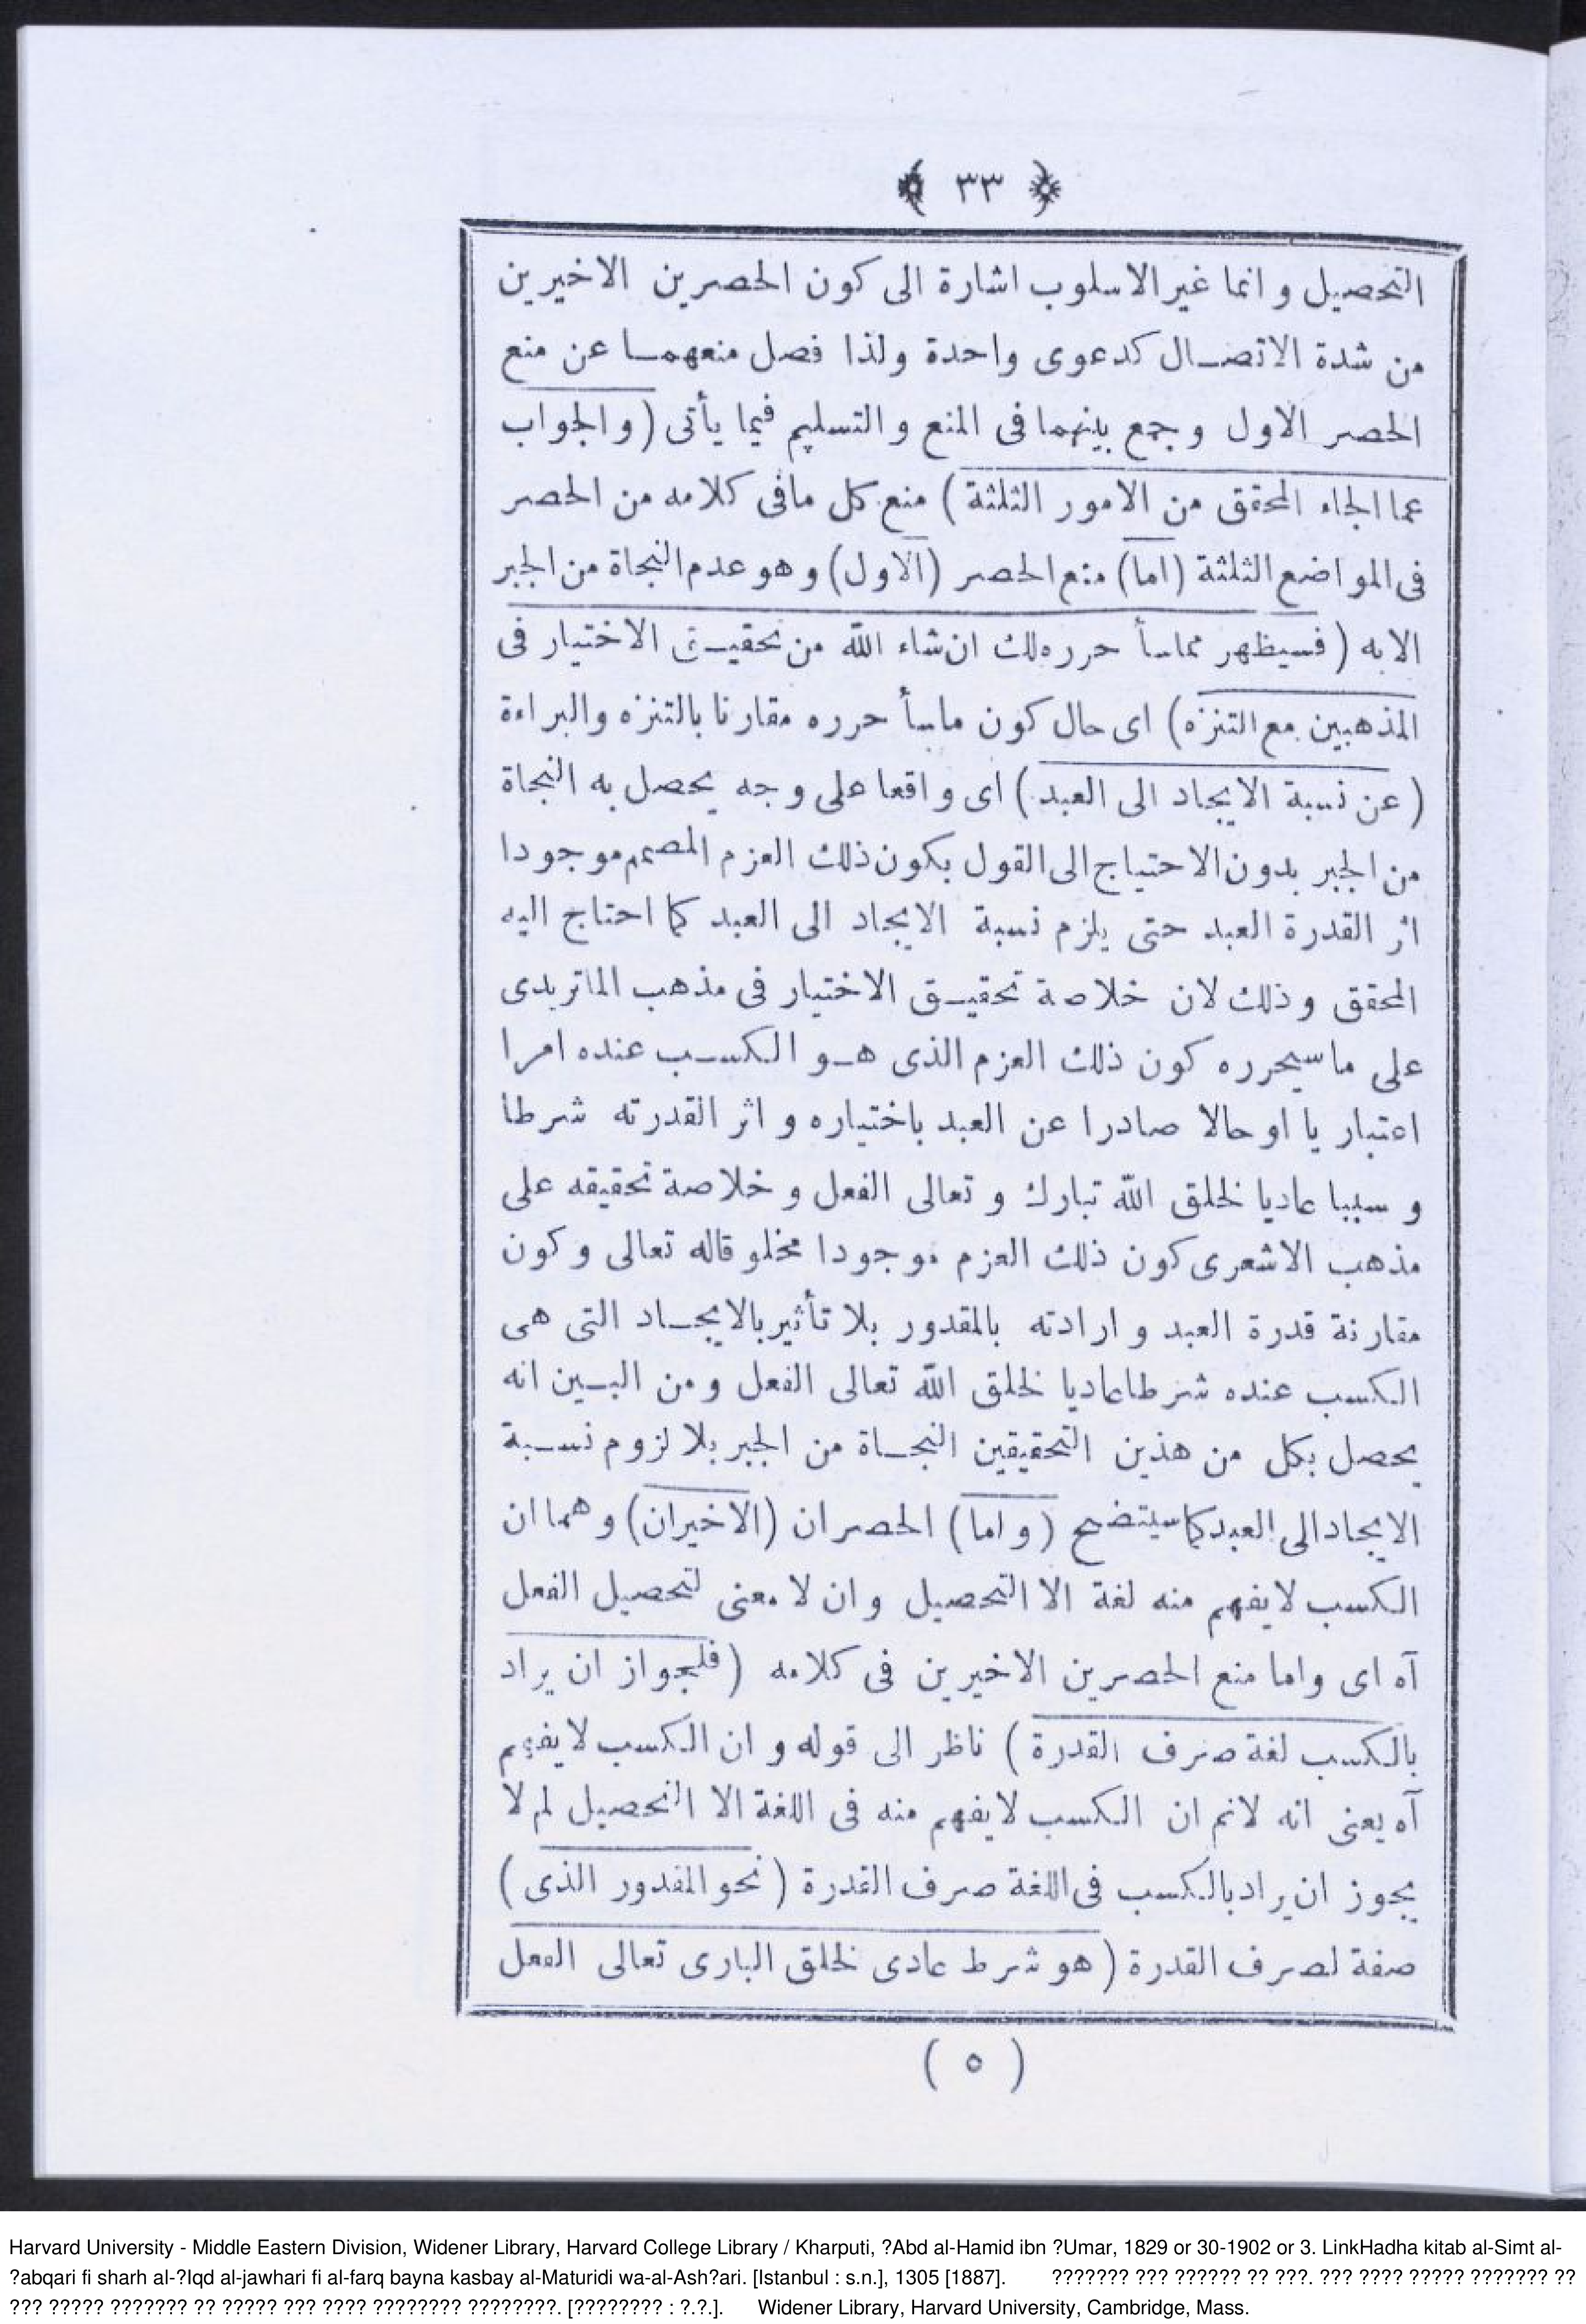 ﴿ ٣٣ ﴾
التحصيل وانما غير الاسلوب اشارة الى كون الحصرين الاخيرين
من شدة الاتصال كدعوى واحدة ولذا فصل منعهما عن منع
الحصر الاول وجمع بينهما فى المنع والتسليم فيما يأتى (والجواب
عما الجاء المحقق من الامور الثلثة) منع كل مافى كلامه من الحصر
فى المواضع الثلثة (اما) منع الحصر (الاول) وهو عدم النجاة من الجبر
الابه (فسيظهر مماسأ حرره لك ان شاء الله من تحقيق الاختيار فى
المذهبين مع التنزه) اى حال كون ماسأ حرره مقارنا بالتنزه والبراءة
(عن نسبة الايجاد الى العبد) اى واقعا على وجه يحصل به النجاة
من الجبر بدون الاحتياج الى القول بكون ذلك العزم المصمم موجودا
اثر القدرة العبد حتى يلزم نسبة الايجاد الى العبد كما احتاج اليه
المحقق وذلك لان خلاصة تحقيق الاختيار فى مذهب الماتريدى
على ماسيحرره كون ذلك العزم الذى هو الكسب عنده امرا
اعتبار يا او حالا صادرا عن العبد باختياره و اثر القدرته شرطا
و سببا عاديا لخلق الله تبارك و تعالى الفعل و خلاصة تحقيقه على
مذهب الاشعرى كون ذلك العزم موجودا مخلو قاله تعالى وكون
مقارنة قدرة العبد و ارادته بالمقدور بلا تأثير بالايجاد التى هى
الكسب عنده شرطا عاديا لخلق الله تعالى الفعل ومن البين انه
يحصل بكل من هذين التحقيقين النجاة من الجبر بلا لزوم نسبة
الايجاد الى العبد كما سيتضح (واما) الحصران (الاخيران) وهما ان
الكسب لايفهم منه لغة الا التحصيل وان لا معنى لتحصيل الفعل
آه اى واما منع الحصرين الاخيرين فى كلامه (فلجواز ان يراد
بالكسب لغة صرف القدرة) ناظر الى قوله و ان الكسب لايفهم
آه يعنى انه لانم ان الكسب لايفهم منه فى اللغة الا التحصيل لم لا
يجوز ان يراد بالكسب فى اللغة صرف القدرة (نحو المقدور الذى)
صفة لصرف القدرة (هو شرط عادى لخلق البارى تعالى الفعل
(٥)
Harvard University - Middle Eastern Division, Widener Library, Harvard College Library / Kharputi, ?Abd al-Hamid ibn ?Umar, 1829 or 30-1902 or 3. LinkHadha kitab al-Simt al-
?abqari fi sharh al-?Iqd al-jawhari fi al-farq bayna kasbay al-Maturidi wa-al-Ash?ari. [Istanbul : s.n.], 1305 [1887]. ??????? ??? ?????? ?? ???. ??? ???? ????? ??????? ??
??? ????? ??????? ?? ????? ??? ???? ???????? ????????. [???????? : ?.?.]. Widener Library, Harvard University, Cambridge, Mass.